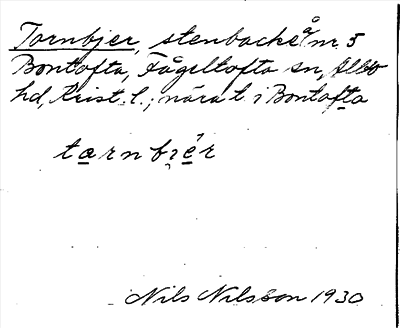 Tornbjer, stenbacke å nr 5
Bontofta, Fågeltofta sn, Albo
hd, Krist. l.; nära t i Bontofta
tɑrnbɪér
Nils Nilsson 1930